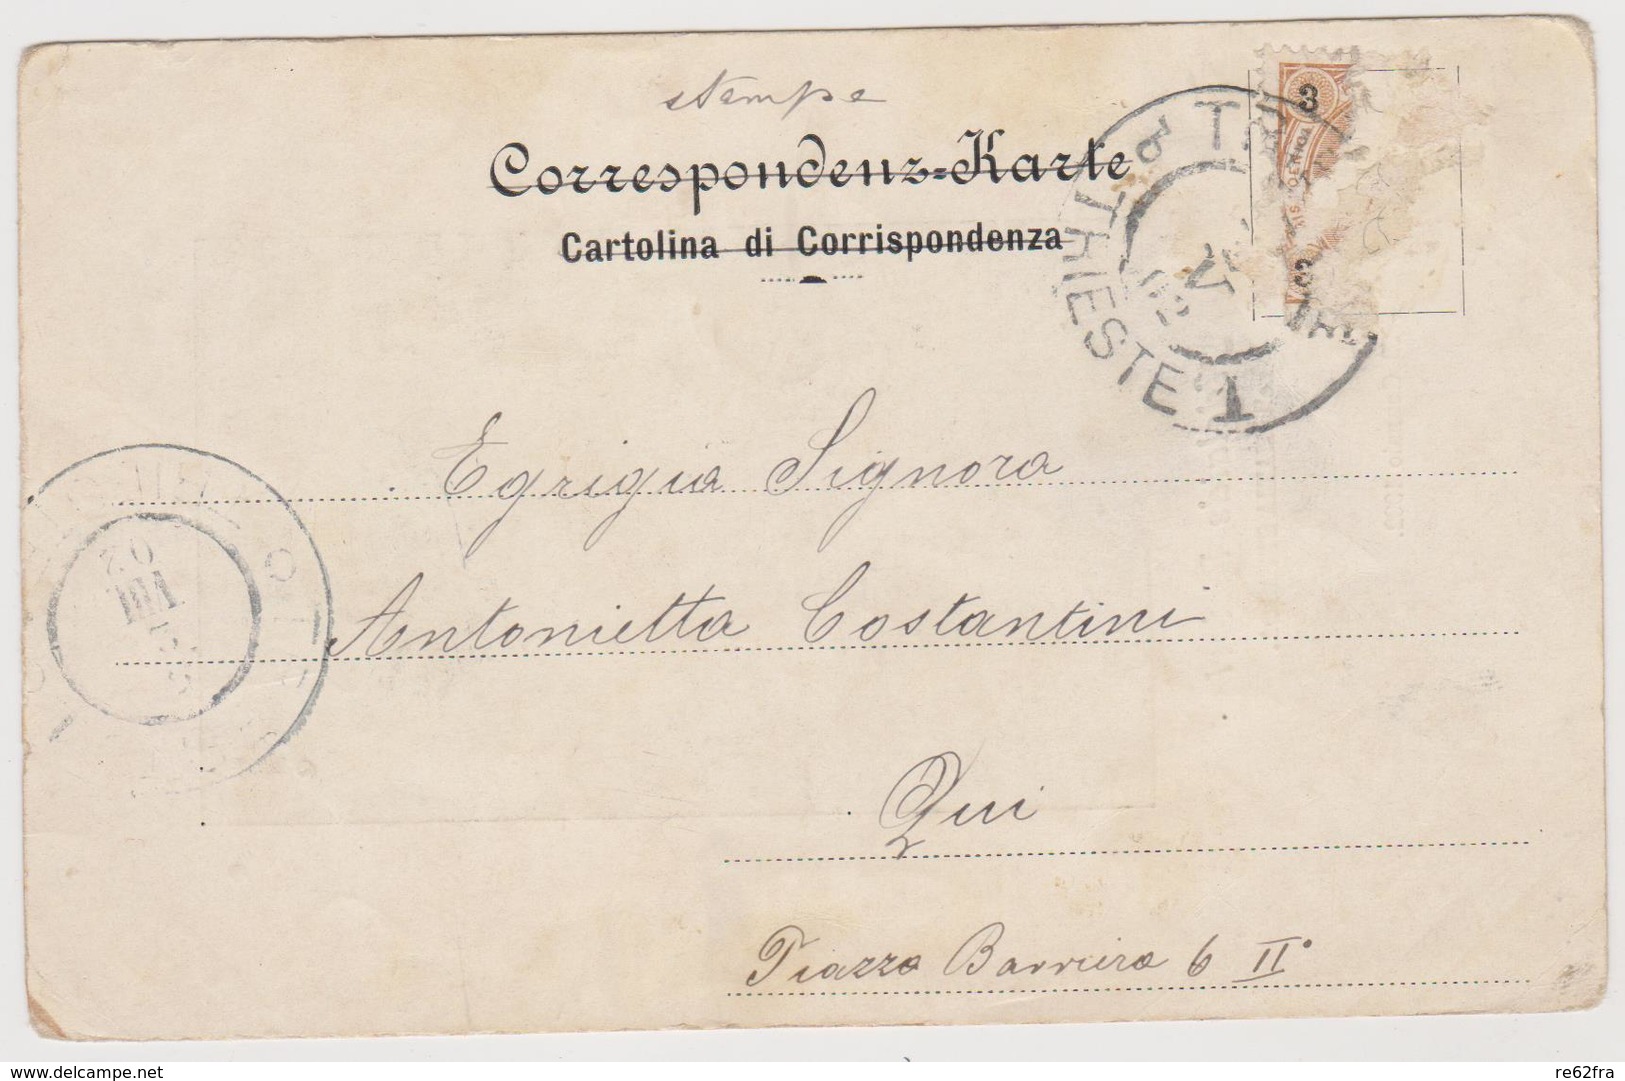 stampe
Correspondenz-Karte
Cartolina di Corrispondenza
3
3
TRIESTE
Egrigia Signora
Antonietta Costantini
Qui
Piazza Barriera 6 II°
www.delcampe.net
re62fra